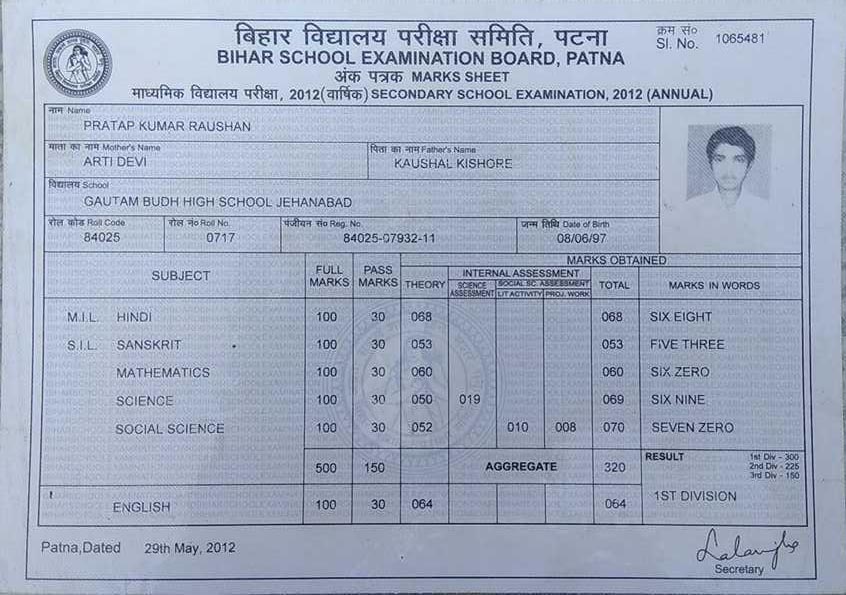 बिहार विद्यालय परीक्षा समिति, पटना
क्रम सं०
Sl. No. 1065481
BIHAR SCHOOL EXAMINATION BOARD, PATNA
अंक पत्रक MARKS SHEET
माध्यमिक विद्यालय परीक्षा, 2012(वार्षिक) SECONDARY SCHOOL EXAMINATION, 2012 (ANNUAL)
नाम Name
PRATAP KUMAR RAUSHAN
माता का नाम Mother's Name पिता का नाम Father's Name
ARTI DEVI KAUSHAL KISHORE
विद्यालय School
GAUTAM BUDH HIGH SCHOOL JEHANABAD
रोल कोड Roll Code रोल नं० Roll No. पंजीयन सं० Reg. No. जन्म तिथि Date of Birth
84025 0717 84025-07932-11 08/06/97
MARKS OBTAINED
SUBJECT FULL MARKS PASS MARKS THEORY INTERNAL ASSESSMENT TOTAL MARKS IN WORDS
SCIENCE ASSESSMENT SOCIAL SC. ASSESSMENT
LIT ACTIVITY PROJ. WORK
M.I.L. HINDI 100 30 068 068 SIX EIGHT
S.I.L. SANSKRIT 100 30 053 053 FIVE THREE
MATHEMATICS 100 30 060 060 SIX ZERO
SCIENCE 100 30 050 019 069 SIX NINE
SOCIAL SCIENCE 100 30 052 010 008 070 SEVEN ZERO
500 150 AGGREGATE 320 RESULT 1st Div - 300
2nd Div - 225
3rd Div - 150
ENGLISH 100 30 064 064 1ST DIVISION
Patna,Dated 29th May, 2012
Secretary